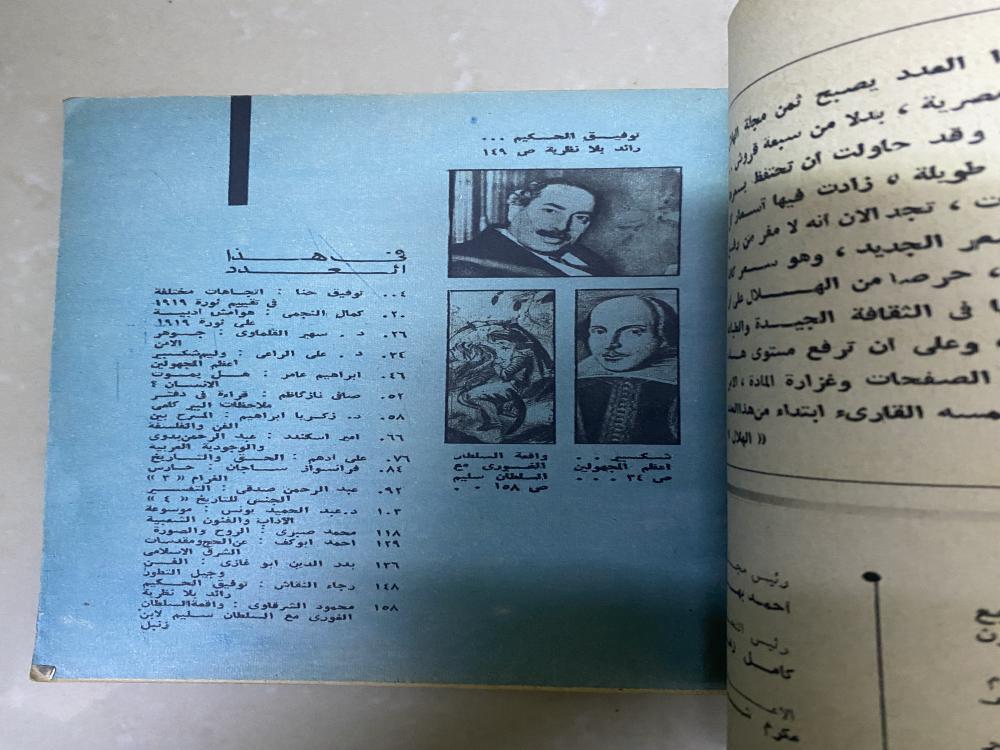 توفيق الحكيم ...
رائد بلا نظرية ص ١٤٩
شكسبير ..
اعظم المجهولين
ص ٣٤ ...
واقعة السلطان
الغورى مع
السلطان سليم
ص ١٥٨ ..
فى هذا
العدد
٤.. توفيق حنا : اتجاهات مختلفة
فى تقييم ثورة ١٩١٩
٢٠. كمال النجمى : هوامش ادبية
على ثورة ١٩١٩
٢٦. د . سهير القلماوى : جوهر
الامن
٣٤. د . على الراعى : وليم شكسبير
اعظم المجهولين
٤٦. ابراهيم عامر : هل يموت
الانسان ؟
٥٢. صافى نازكاظم : قراءة فى دفتر
ملاحظات البير كامى
٥٨. د. زكريا ابراهيم : المسرح بين
الفن والفلسفة
٦٦. امير اسكندر : عبد الرحمن بدوى
والوجودية العربية
٧٦. على ادهم : الحق والتاريخ
٨٤. فرانسواز ساجان : حارس
الغرام « ٣ »
٩٢. عبد الرحمن صدقى : التفسير
الجنسى للتاريخ « ٤ »
١٠٣ د.عبد الحميد يونس : موسوعة
الآداب والفنون الشعبية
١١٨ محمد صبرى : الروح والصورة
١٢٩ احمد ابوكف : عن الحج ومقدسات
الشرق الاسلامى
١٣٦ بدر الدين ابو غازى : الفن
وجيل التطور
١٤٨ رجاء النقاش : توفيق الحكيم
رائد بلا نظرية
١٥٨ محمود الشرقاوى : واقعة السلطان
الغورى مع السلطان سليم لابن
زنبل
العدد يصبح ثمن مجلة
، بدلا من سبعة قروش
وقد حاولت ان تحتفظ
طويلة ، زادت فيها اسعار
، تجد الآن انه لا مفر من
الجديد ، وهو سعر
، حرصا من الهلال على
فى الثقافة الجيدة
وعلى ان ترفع مستوى
الصفحات وغزارة المادة ،
القارىء ابتداء من هذا
« الهلال
رئيس
احمد
رئيس
كامل
مكرم